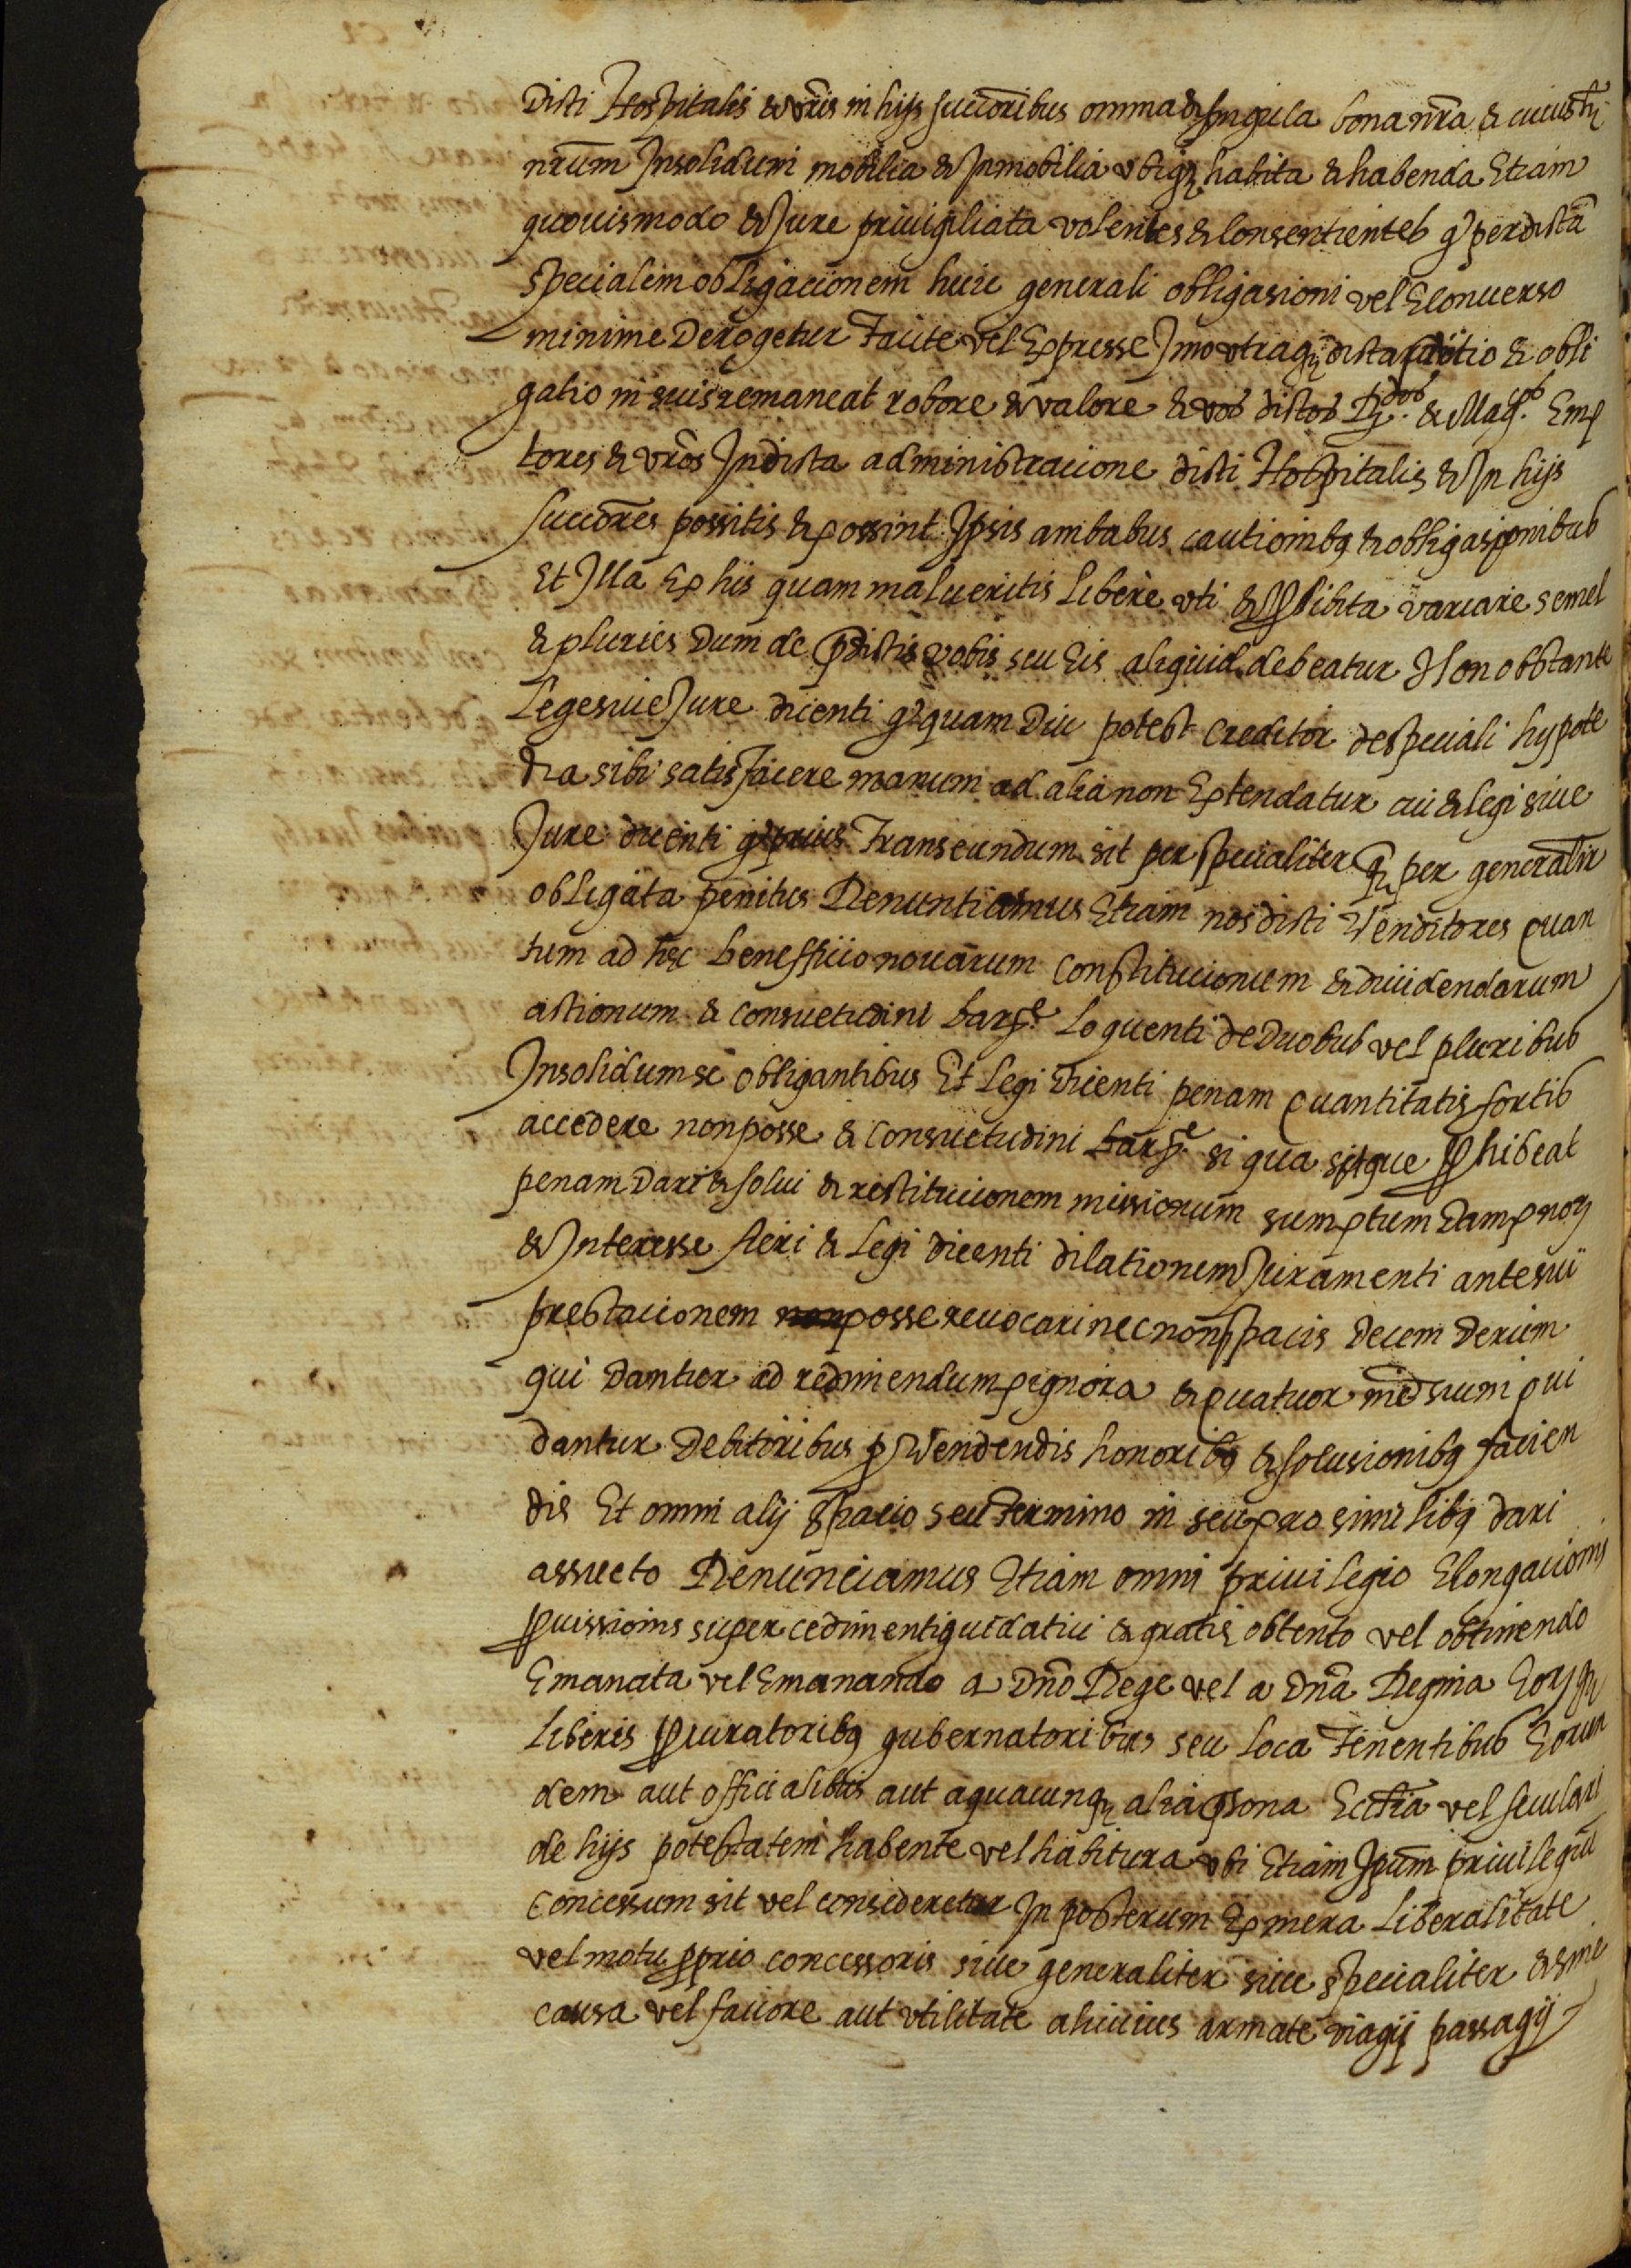 dicti Hospitalis & vr̃is in hijs succoribus omnia & singula bona nr̃a & cuiust̃
nr̃um Insolidum mobilia & Inmobilia vbiqȝ habita & habenda Etiam
quouismodo & Jure priuigiliata volentes & consentientes qꝫ per dictã
specialem obligacionem huic generali obligasioni vel Econuerso
minime Derogetur Tacite vel Expresse Imo vtraqȝ dicta & obli
gatio in suis remaneat robore & valore & vos dictos & Mag.cos Emp
tores & vr̃os In dicta administracione dicti Hospitalis & In hijs
succores possitis & possint Ipsis ambabus cautionibꝫ & obligasionibus
Et Illa Ex his quam malueritis libere vti & ꝓ libita variare semel
& pluries Dum de p̃dictis vobis seu Eis aliquid debeatur Non obstante
Lege siue Jure dicenti qꝫ quam Diu potest Creditor de speciali hypote
cha sibi satisfacere manum ad alia non Extendatur cui & legi siue
Jure dicenti qꝫ prius Transeundum sit per specialiter q̃ per generalir̃
obligata penitus Renuntiamus Etiam nos dicti Venditores quan
tum ad hec benefficio nouarum Constitucionum & diuidendarum
actionum & consuetudini barc̃e Loquenti de Duobus vel pluribus
Insolidum se obligantibus Et Legi dicenti penam quantitatis sortis
accedere non posse & Consuetudini barc̃e si qua sit que ꝓhibeat
penam Dari & solui & restitucionem missionum sumptum Dampnoꝝ
& Interesse fieri & Legi dicenti dilationem Juramenti ante sui
prestacionem non posse reuocari nec non spacis decem dierum
qui dantur ad redimendum pignora & quatuor mensium qui
dantur Debitoribus ꝓ Vendendis honoribꝫ & solusionibꝫ facien
dis Et omni alij spacio seu termino in seu pro similibꝫ dari
assueto Renunciamus Etiam omni priuilegio Elongacionis
ꝓuissionis supercedimenti guidatici & gratie obtento vel obtinendo
Emanata vel Emanando a Dño Rege vel a Dña Regina Eoꝝqȝ
Liberis ꝓcuratoribꝫ gubernatoribus seu Loca Tenentibus Eorun
dem aut officialibus aut a quacunqȝ alia ꝑsona Eccl̃ia vel seculari
de hijs potestatem habente vel habitura vbi Etiam Ipũm priuilegiũ
Concessum sit vel consideretur In posterum Ex mera Liberalitate
vel motu ꝓprio concessoris siue generaliter siue specialiter & sine
causa vel fauore aut vtilitate alicuius armate viagij passagij